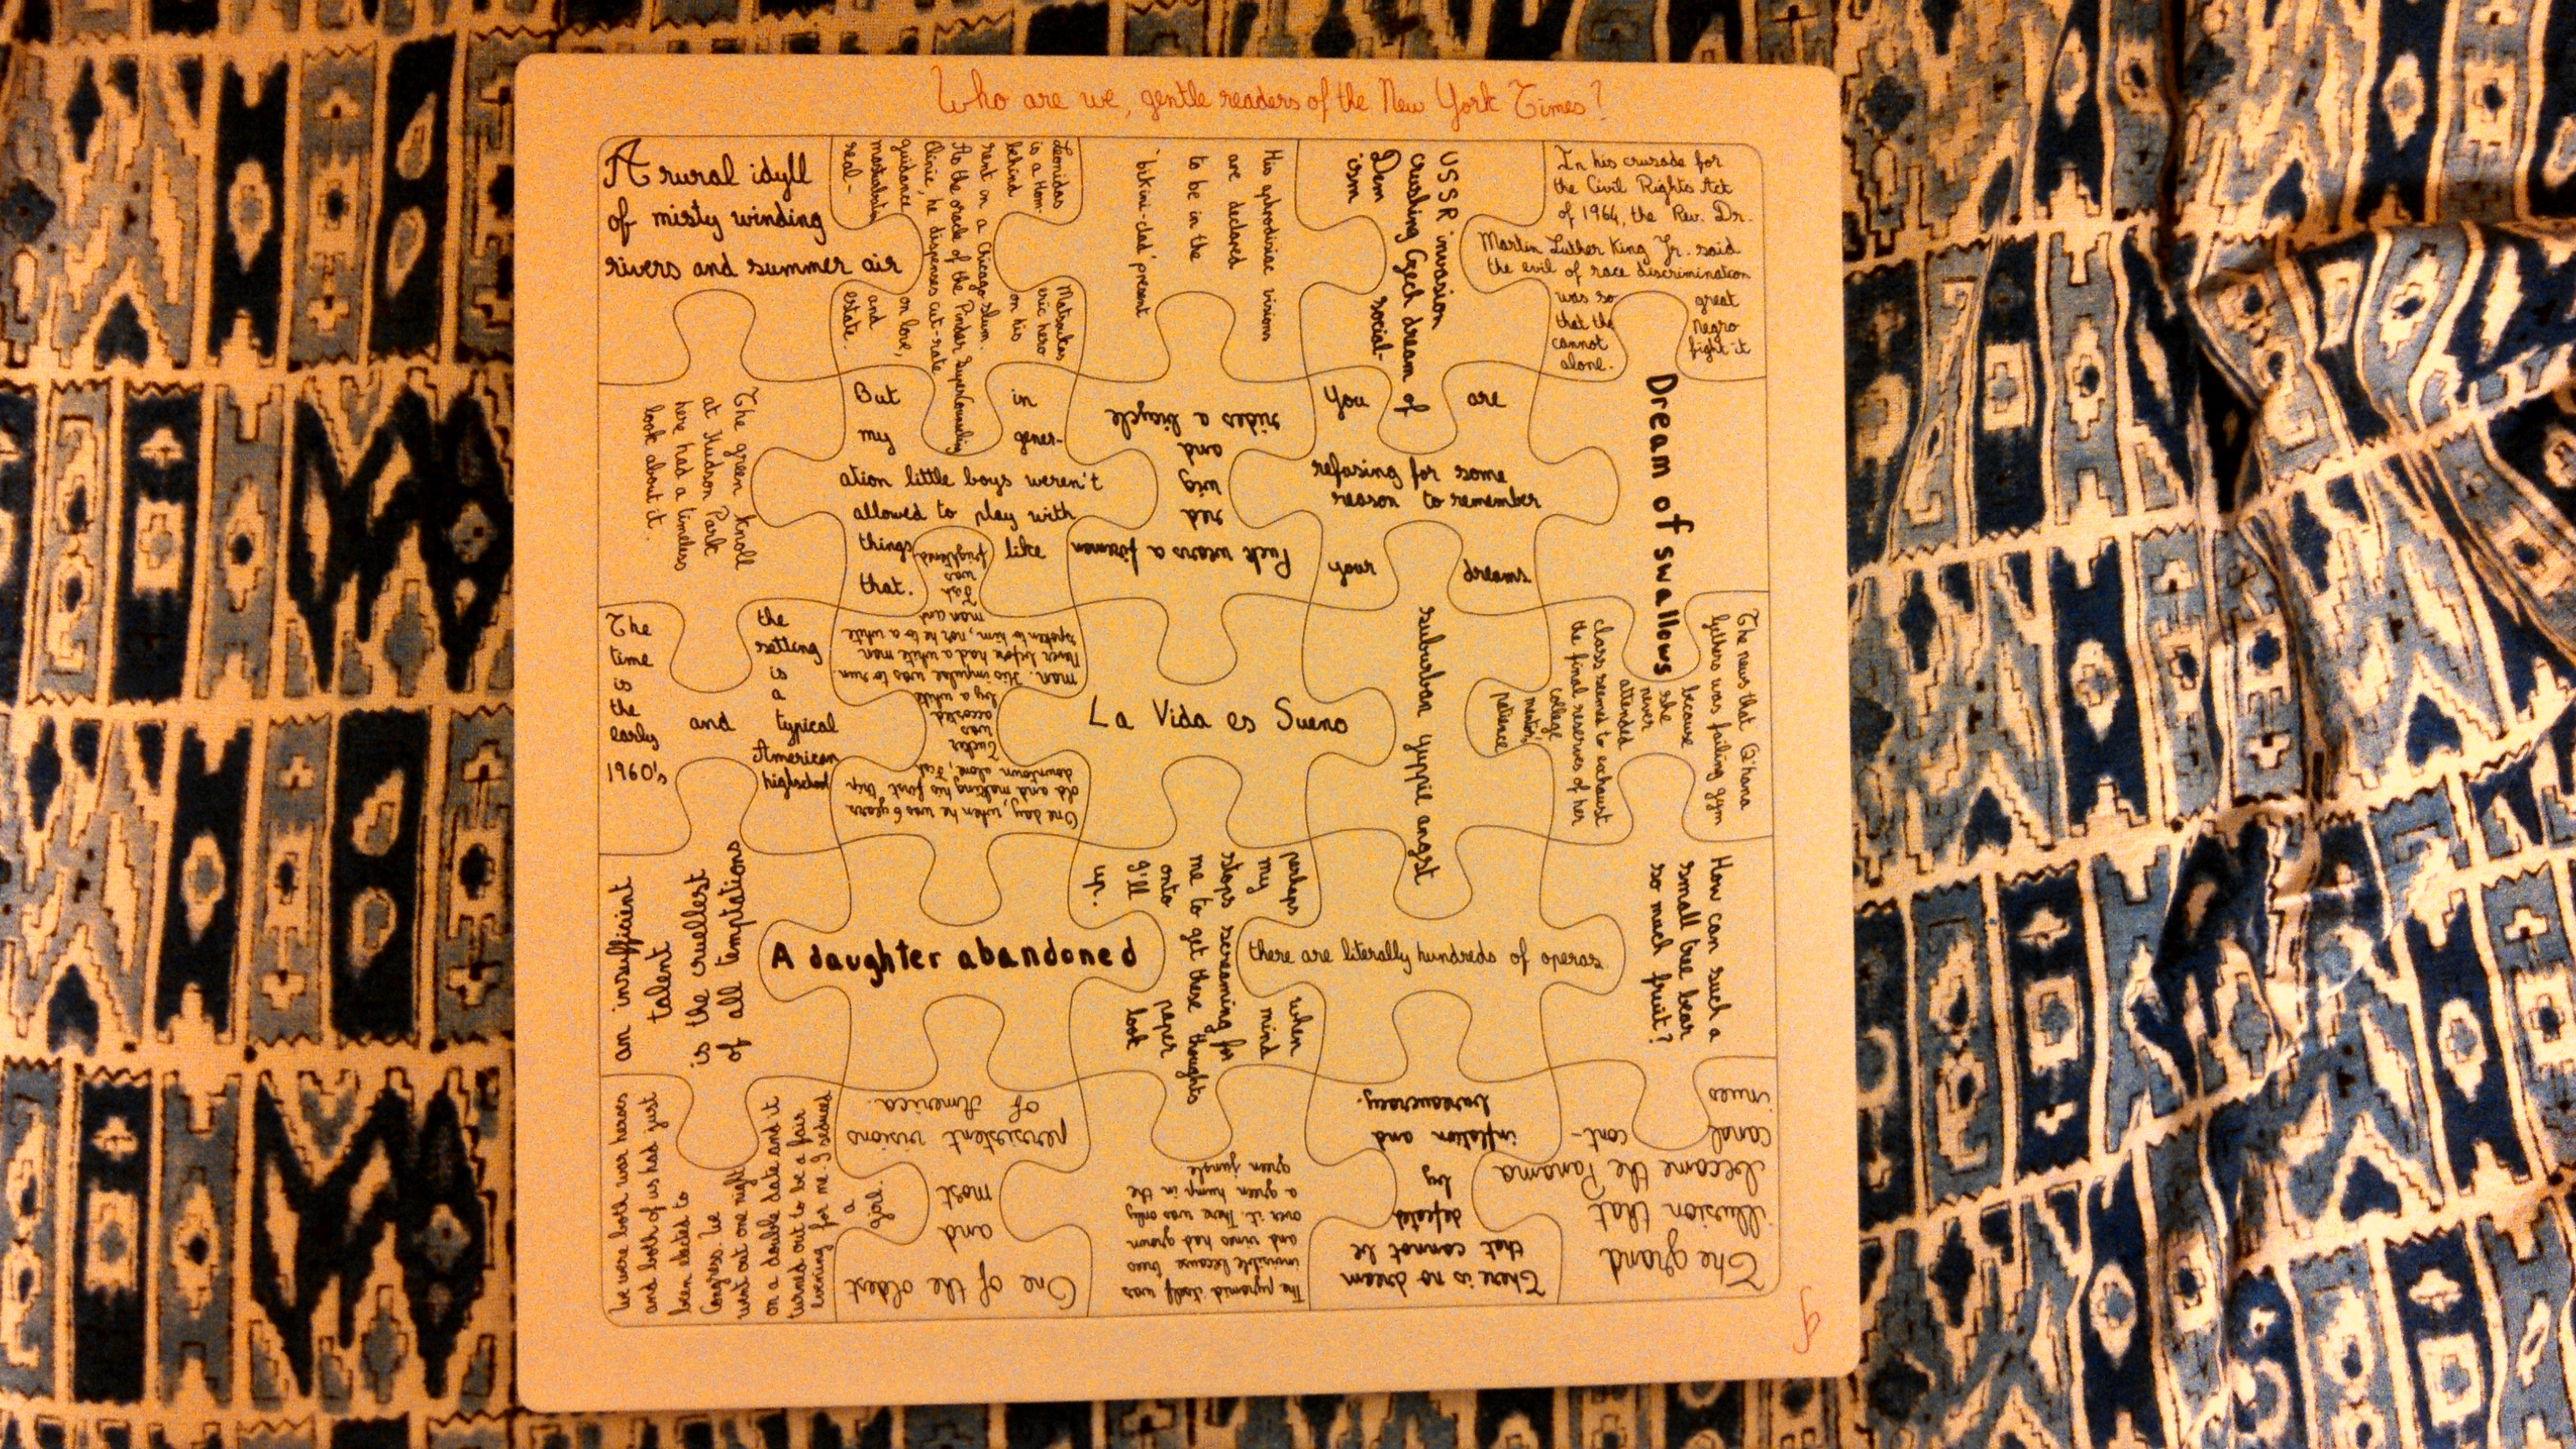 Who are we, gentle readers of the New York Times?
A rural idyll
of misty winding
rivers and summer air
Leonidas Matsukas
is a Hom- eric hero
behind on his
rent in a Chicago slum.
As the oracle of the Pinder Supercounseling
Clinic, he dispenses cut-rate
guidance on love,
masturbation and
real- estate.
His aphrodisiac visions
are declared
to be in the
'bikini-clad' present
USSR invasion
crushing Czech dream of
Dem social-
ism
In his crusade for
the Civil Rights Act
of 1964, the Rev. Dr.
Martin Luther King Jr. said
the evil of race discrimination
was so great
that the Negro
cannot fight it
alone.
The green knoll
at Hudson Park
here had a timeless
look about it.
But in
my gener-
ation little boys weren't
allowed to play with
things like
that.
Puck wears a fireman
red
wig
and
rides a bicycle
You are
refusing for some
reason to remember
your dreams
Dream of swallows
The time is the early 1960's
and
the setting is a typical American highschool
One day, when he was 6 years
old and making his first trip
downtown alone, Jak
Tucker
was
accosted
by a white
man. His impulse was to run.
Never before had a white man
spoken to him, nor he to a white
man and
Jak
was
frightened
La Vida es Sueno
suburban yuppie angst
The news that Q'hana
Gethers was failing gym
because
she
never
attended
class seemed to exhaust
the final reserves of her
college
mentor's
patience
an insufficient
talent
is the cruellest
of all temptations
A daughter abandoned
perhaps when
my mind
stops screaming for
me to get these thoughts
onto paper
I'll look
up.
there are literally hundreds of operas.
How can such a
small tree bear
so much fruit?
We were both war heroes
and both of us had just
been elected to
Congress. We
went out one night
on a double date and it
turned out to be a fair
evening for me. I seduced
a
girl.
One of the oldest
and
most
persistent visions
of America.
The pyramid itself was
invisible because trees
and vines had grown
over it. There was only
a green hump in the
green jungle
There is no dream
that cannot be
defeated
by
inflation and
bureaucracy.
The grand
illusion that
became the Panama
canal cont-
inues